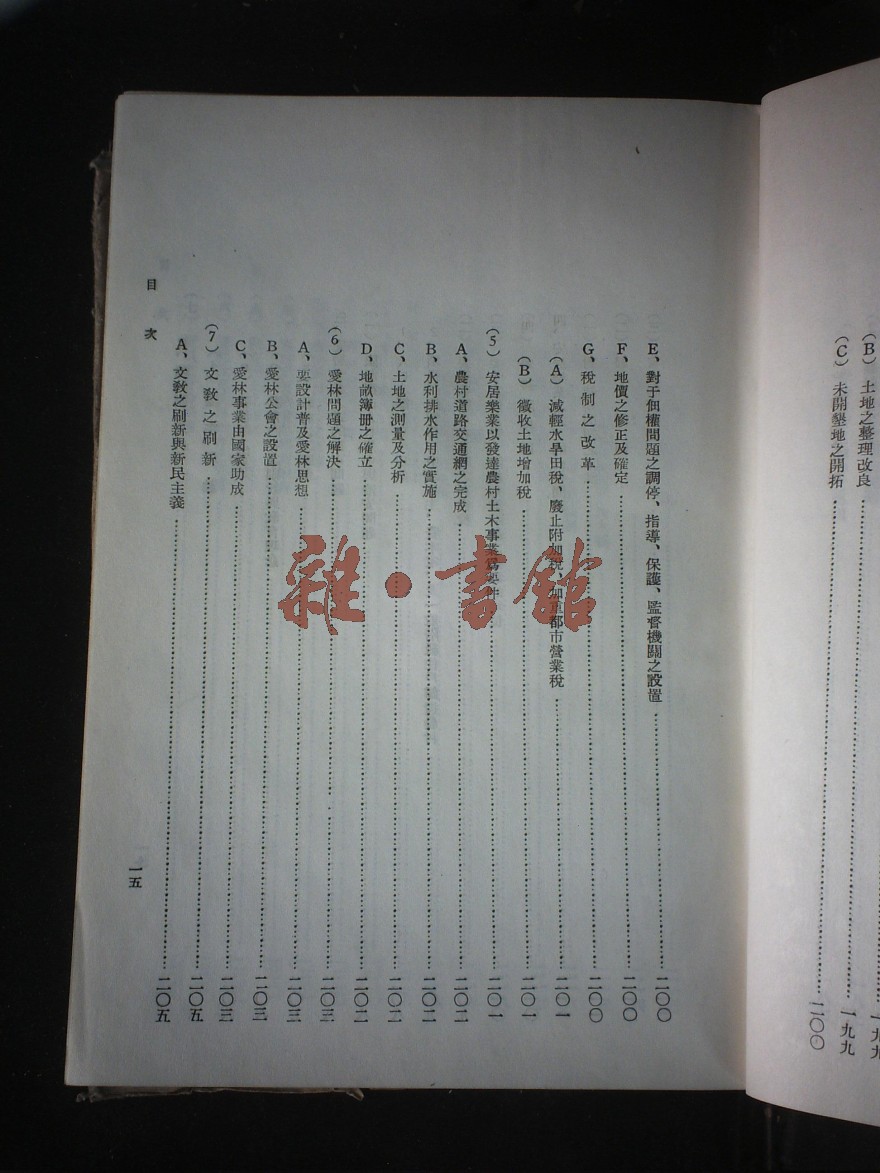 (B) 土地之整理改良……一九九
(C) 未開墾地之開拓……二〇〇
E、對于佃權問題之調停、指導、保護、監督機關之設置……二〇〇
F、地價之修正及確定……二〇〇
G、稅制之改革……二〇〇
(A) 減輕水旱田稅、廢止附加稅、加重都市營業稅……二〇一
(B) 徵收土地增加稅……二〇一
(5) 安居樂業以發達農村土木事業爲要件……二〇一
A、農村道路交通網之完成……二〇二
B、水利排水作用之實施……二〇二
C、土地之測量及分析……二〇二
D、地畝簿册之確立……二〇二
(6) 愛林問題之解決……二〇三
A、要設計普及愛林思想……二〇三
B、愛林公會之設置……二〇三
C、愛林事業由國家助成……二〇三
(7) 文敎之刷新……二〇五
A、文敎之刷新與新民主義……二〇五
目次
一五
雜·書館